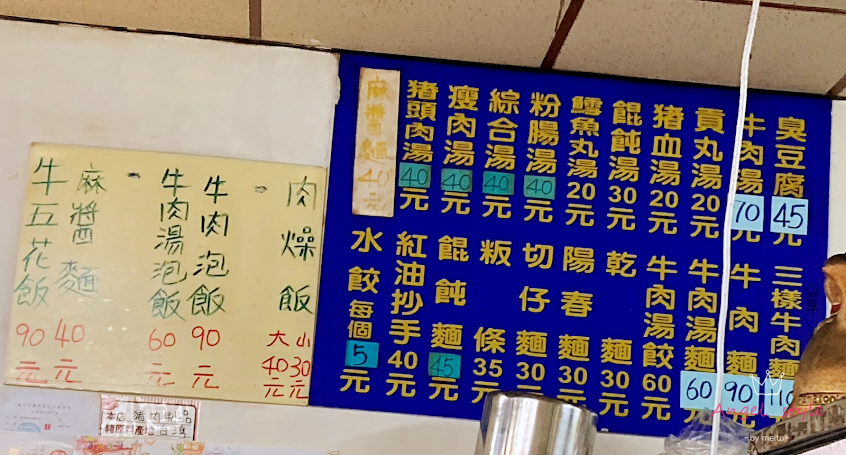 臭豆腐45元
牛肉湯70元
貢丸湯20元
猪血湯20元
餛飩湯30元
鱈魚丸湯20元
粉腸湯40元
綜合湯40元
瘦肉湯40元
猪頭肉湯40元
麻醬麵40元
三樣牛肉麵110
牛肉麵90元
牛肉湯麵60元
牛肉湯餃60元
乾麵30元
陽春麵30元
切仔麵30元
粄條35元
餛飩麵45元
紅油抄手40元
水餃每個5元
肉燥飯大40元小30元
牛肉泡飯90元
牛肉湯泡飯60元
麻醬麵40元
牛五花飯90元
本店猪肉製品
豬原料產地台灣
Angel style
by meitu